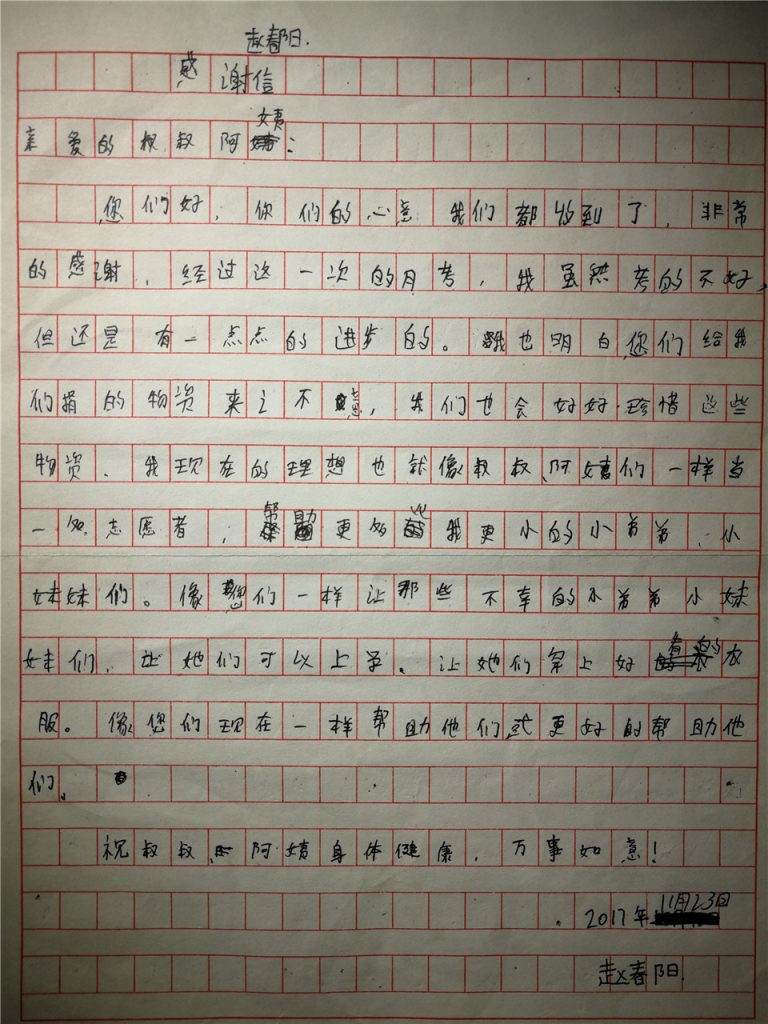 赵春阳.
感谢信
亲爱的叔叔阿姨:
您们好,你们的心意我们都收到了,非常
的感谢,经过这一次的月考,我虽然考的不好,
但还是有一点点的进步的。我也明白,您们给我
们捐的物资来之不意,我们也会好好珍惜这些
物资、我现在的理想也就像叔叔、阿姨们一样当
一名志愿者,帮助更多比我更小的小弟弟、小
妹妹们。像您们一样让那些不幸的小弟弟小妹
妹们、让她们可以上学、让她们穿上好看的衣
服。像您们现在一样帮助他们或更好的帮助他
们。
祝叔叔阿姨身体健康,万事如意!
2017年11月23日
赵春阳.